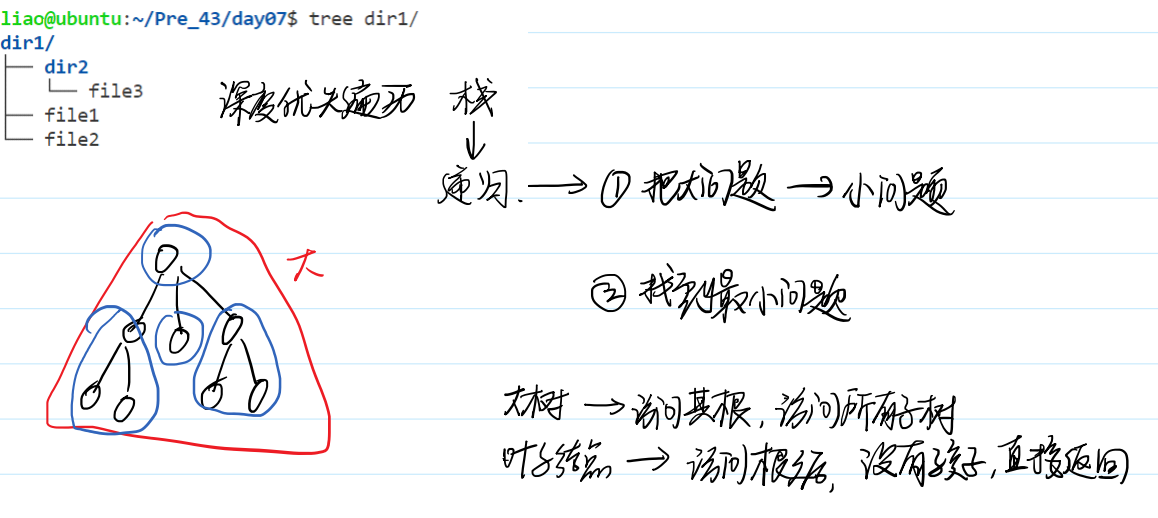 liao@ubuntu:~/Pre_43/day07$ tree dir1/
dir1/
├── dir2
│   └── file3
├── file1
└── file2
深度优先遍历 栈
↓
递归. → ① 把大问题 → 小问题
大
② 找到最小问题
大树 → 访问其根, 访问所有子树
叶子结点 → 访问根结点, 没有孩子, 直接返回